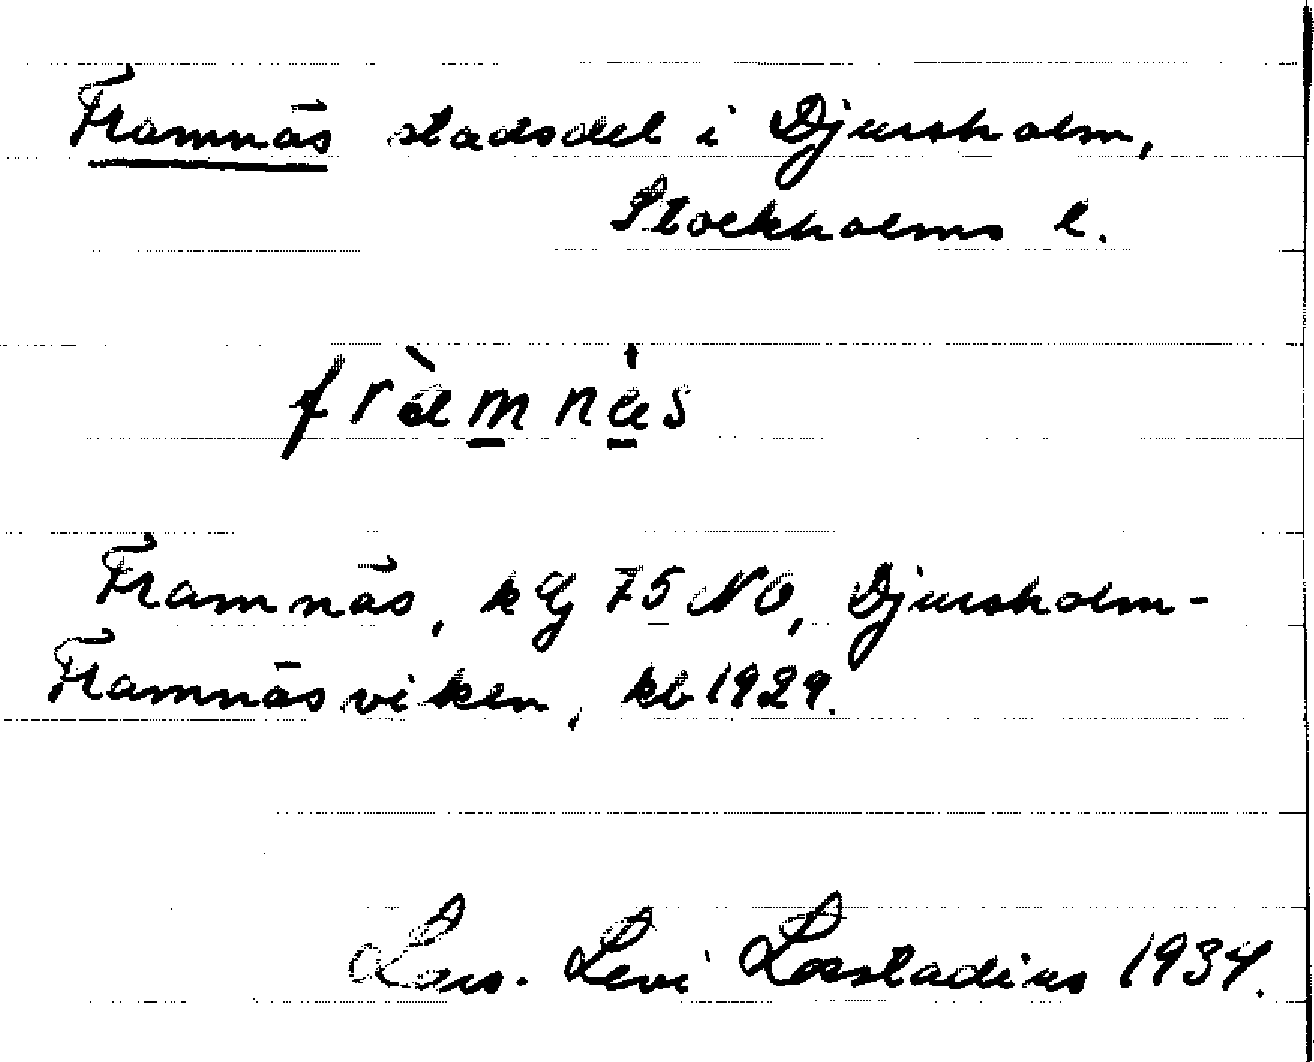 Framnäs stadsdel i Djursholm,
Stockholms l.
fràmnäs
Framnäs, kg 75 NO, Djursholm-
Framnäsviken, kb 1929.
Lars. Levi Læstadius 1934.